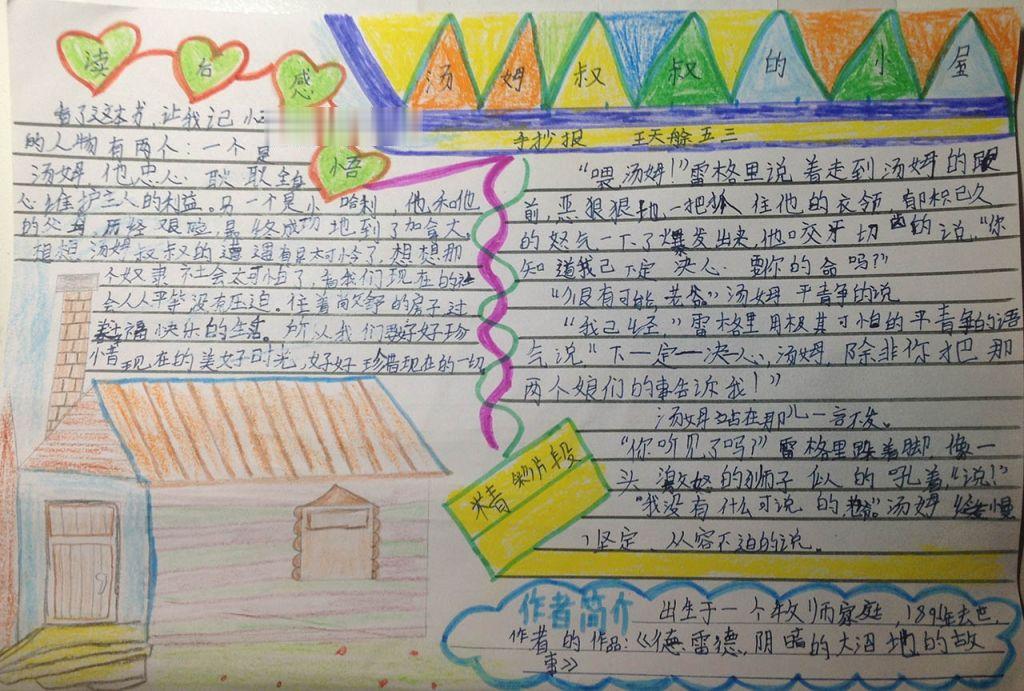 汤姆叔叔的小屋
手抄报 王天舲五三
读后感悟
看了这本书,让我记
的人物有两个:一个是
汤姆他忠心耿耿全
心维护主人的利益。另一个是小哈利,他和他
的父母,历经艰险,最终成功地到了加拿大,
想想汤姆叔叔的遭遇有是太可怜了,想想那
个奴隶社会太可怕了,看我们现在的社
会人人平等没有压迫。住着的房子过
着幸福快乐的生活。所以我们要好好珍
惜现在的美好时光,好好珍惜现在的一切
“喂,汤姆!”雷格里说着走到汤姆的跟
前,恶狠狠地一把抓住他的衣领,郁积已久
的怒气一下了爆发出来,他口咬牙切齿的说,“你
知道我已下定决心要你的命吗?”
“很有可能,老爷”汤姆平静的说
“我已经”雷格里用极其可怕的平静的语
气说“下一定一决心,汤姆,除非你才把那
两个娘们的事告诉我!”
汤姆站在那儿一言不发。
“你听见了吗?”雷格里跺着脚像一
头激怒的狮子似的吼着,“说!”
“我没有什么可说的老爷”汤姆缓慢
坚定、从容不迫的说。
精彩片段
作者简介 出生于一个牧师家庭,1896年去世,
作者的作品:《德雷德,阴暗的大沼地的故
事》